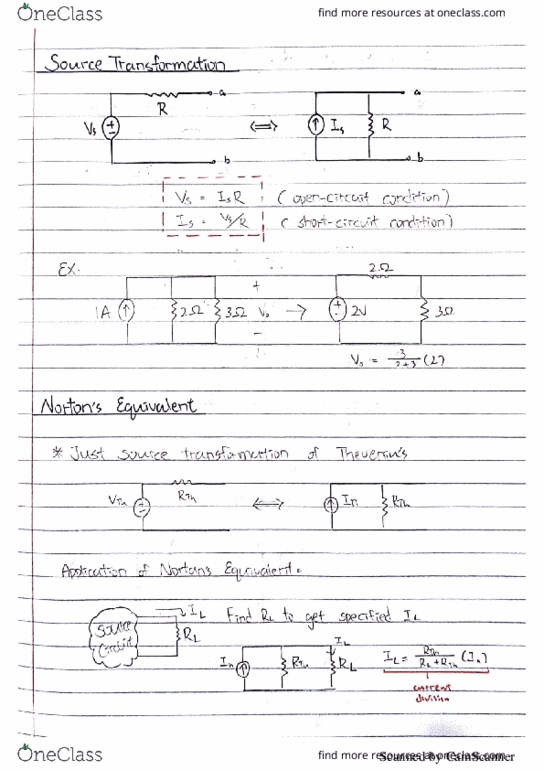 OneClass
find more resources at oneclass.com
Source Transformation
a
R
Vs
b
⟺
a
Is
R
b
Vs = IsR (open-circuit condition)
Is = Vs/R (short-circuit condition)
EX.
1A
2Ω
3Ω
+
Vo
−
→
2Ω
2V
3Ω
Vo = 3/2+3 (2)
Norton's Equivalent
* Just source transformation of Thevenin's
VTh
RTh
⟺
In
RTh
Application of Norton's Equivalent.
Source Circuit
IL
RL
Find RL to get specified IL
In
RTh
IL
RL
IL = RTh/RL+RTh (In)
current
division
OneClass
find more resources at oneclass.com
Scanned by CamScanner